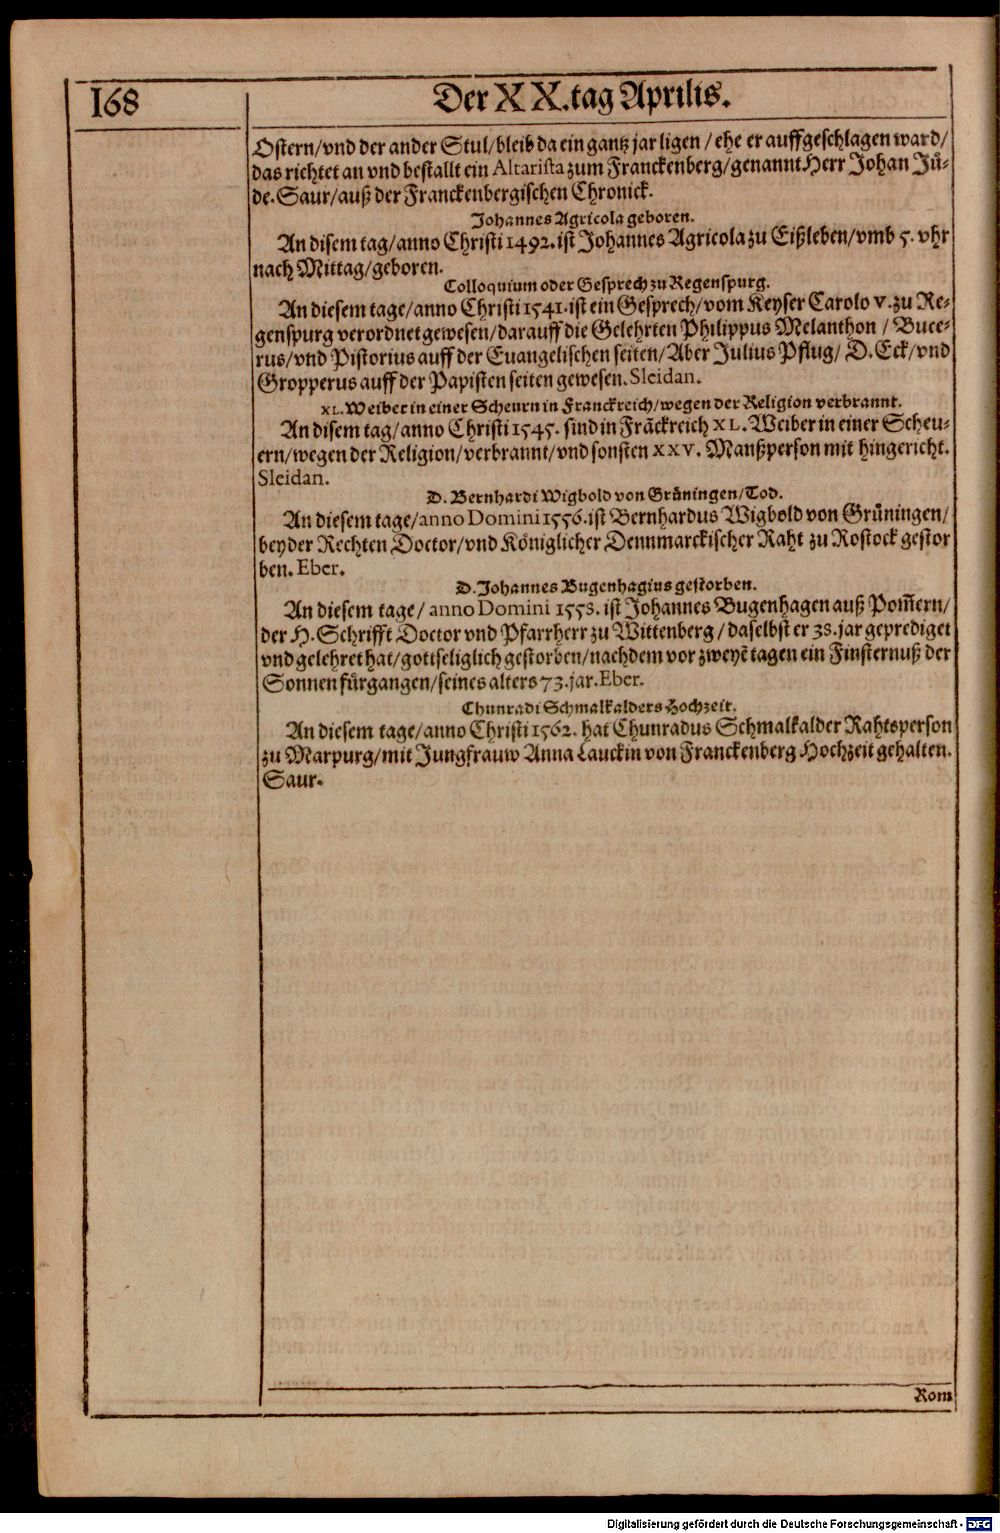 168
Der XX. tag Aprilis.
Ostern/vnd der ander Stul/bleib da ein gantz jar ligen / ehe er auffgeschlagen ward/
das richtet an vnd bestallt ein Altarista zum Franckenberg/genannt Herr Johan Jü-
de. Saur/auß der Franckenbergischen Chronick.
Johannes Agricola geboren.
An disem tag/anno Christi 1492. ist Johannes Agricola zu Eißleben/vmb 5. vhr
nach Mittag/geboren.
Colloquium oder Gesprech zu Regenspurg.
An diesem tage/anno Christi 1541. ist ein Gesprech/vom Keyser Carolo V. zu Re-
genspurg verordnet gewesen/darauff die Gelehrten Philippus Melanthon / Buce-
rus/vnd Pistorius auff der Euangelischen seiten/Aber Julius Pflug/ D. Eck/vnd
Gropperus auff der Papisten seiten gewesen. Sleidan.
XL. Weiber in einer Scheurn in Franckreich/wegen der Religion verbrannt.
An disem tag/anno Christi 1545. sind in Frāckreich XL. Weiber in einer Scheu-
ern/wegen der Religion/verbrannt/vnd sonsten XXV. Manßperson mit hingericht.
Sleidan.
D. Bernhardi Wigbold von Grüningen/Tod.
An diesem tage/anno Domini 1556. ist Bernhardus Wigbold von Grüningen/
beyder Rechten Doctor/vnd Königlicher Dennmarckischer Raht zu Rostock gestor
ben. Eber.
D. Johannes Bugenhagius gestorben.
An diesem tage/ anno Domini 1558. ist Johannes Bugenhagen auß Pom̄ern/
der H. Schrifft Doctor vnd Pfarrherr zu Wittenberg / daselbst er 38. jar geprediget
vnd gelehret hat/gottseliglich gestorben/nachdem vor zweyē tagen ein Finsternuß der
Sonnen fürgangen/seines alters 73. jar. Eber.
Chunradi Schmalkalders Hochzeit.
An diesem tage/anno Christi 1562. hat Chunradus Schmalkalder Rahtsperson
zu Marpurg/mit Jungfrauw Anna Lauckin von Franckenberg Hochzeit gehalten.
Saur.
Rom
Digitalisierung gefördert durch die Deutsche Forschungsgemeinschaft - DFG